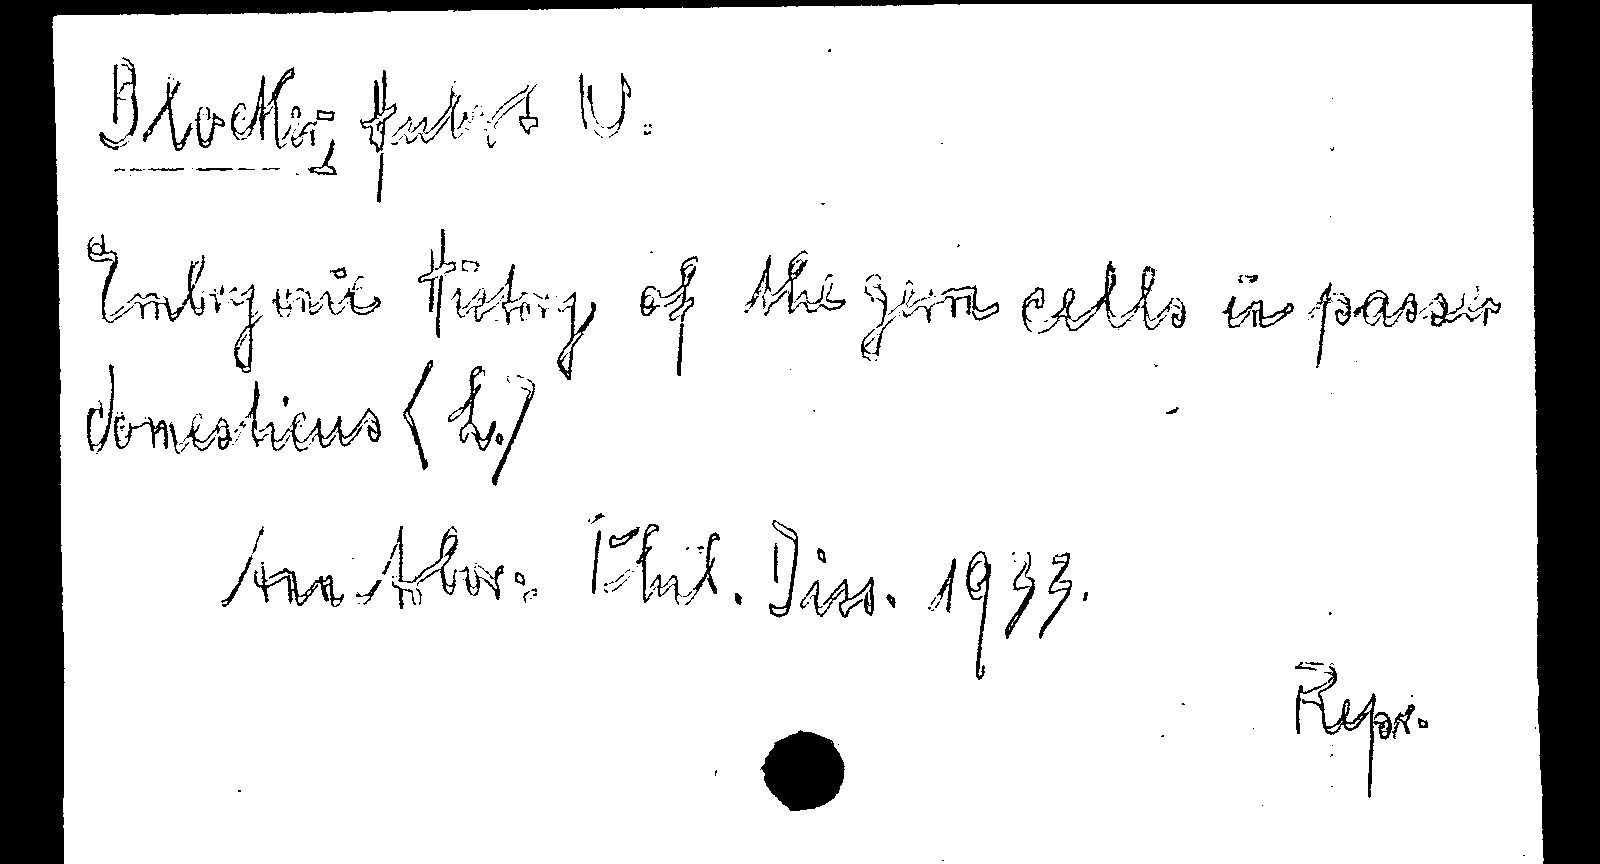 Blocker, Hubert W.
Embryonic History of the germ cells in passer
domesticus (L.)
Ann Arbor: Phil. Diss. 1933.
Repr.